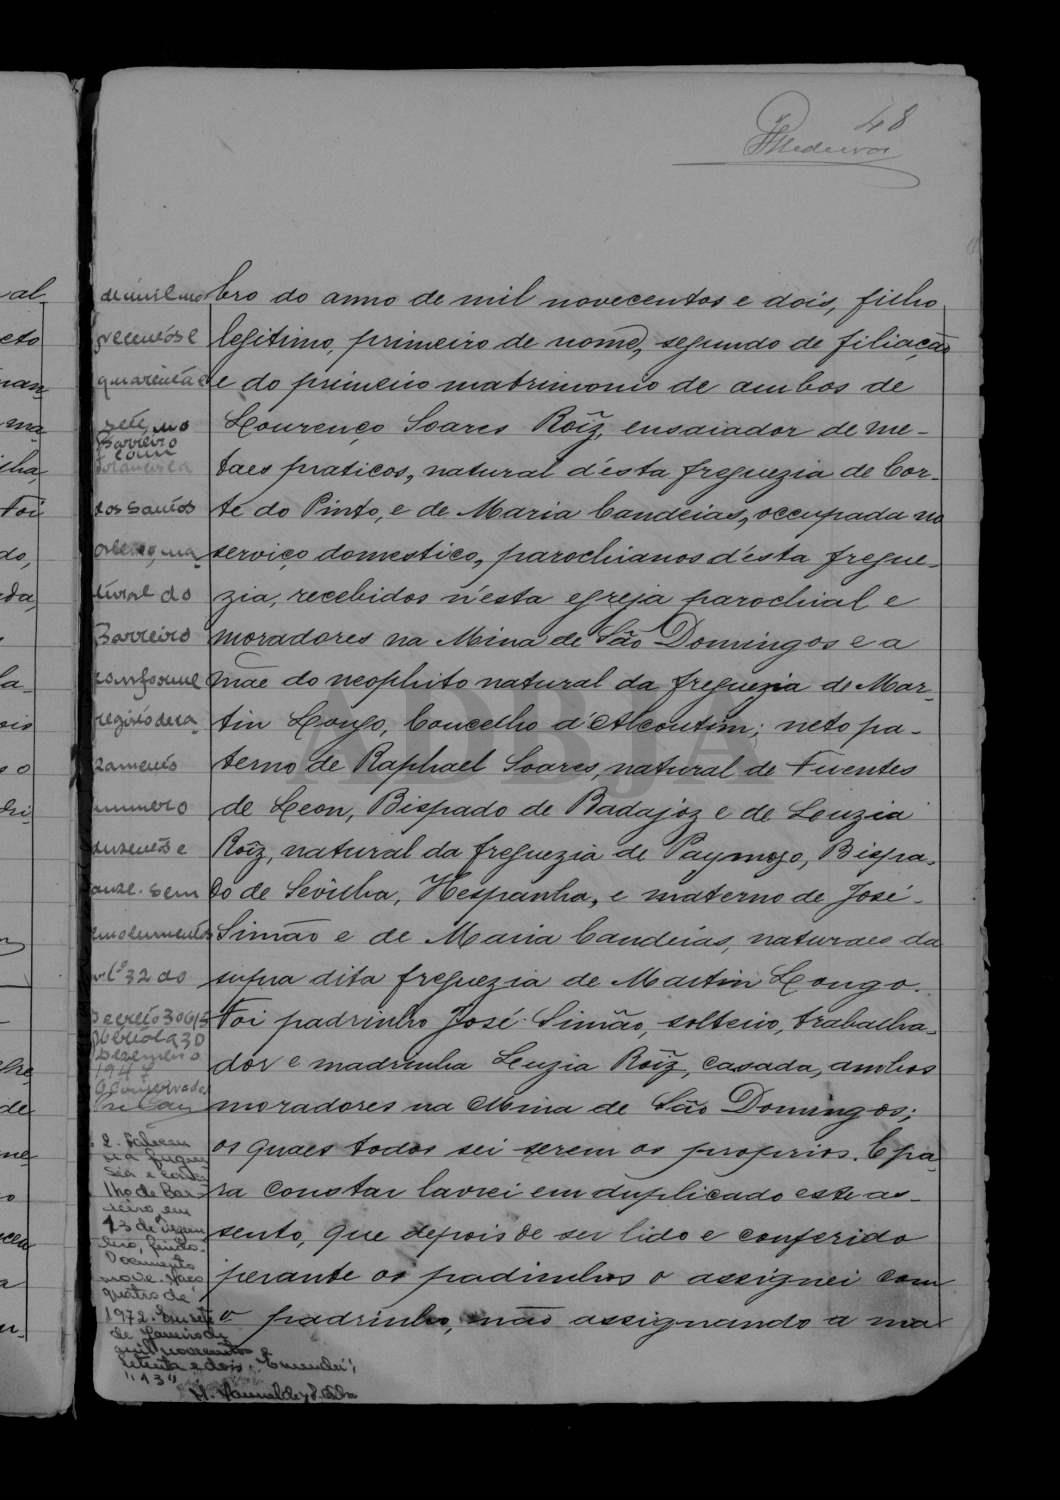 48
Medeiros
bro do anno de mil novecentos e dois, filho
legitimo, primeiro de nome, segundo de filiação
e do primeiro matrimonio de ambos de
Lourenço Soares Roĩz, ensaiador de me-
taes praticos, natural d'ésta freguezia de Cor-
te do Pinto, e de Maria Candeias, occupada no
serviço domestico, parochianos d'ésta fregue-
zia, recebidos n'esta egreja parochial e
moradores na Mina de São Domingos e a
mãe do neophito natural da freguezia de Mar-
tin Longo, Concelho d'Alcoutim; neto pa-
terno de Raphael Soares, natural de Fuentes
de Leon, Bispado de Badajóz e de Luzia
Roĩz, natural da freguezia de Paymogo, Bispa-
do de Sevilha, Hespanha, e materno de José
Simão e de Maria Candeias, naturaes da
supra dita freguezia de Martin Longo.
Foi padrinho José Simão, solteiro, trabalha-
dor e madrinha Luzia Roĩz, casada, ambos
moradores na Mina de São Domingos;
os quaes todos sei serem os proprios. E pa-
ra constar lavrei em duplicado este as-
sento, que depois de ser lido e conferido
perante os padrinhos o assignei com
o padrinho, não assignando a ma
de mil no
vecentos e
quarenta e
sete, no
Barreiro
com
dos Santos
natural do
Barreiro
conforme
registo de ca
zamento
numero
duzentos e
onze. Sem
emolumentos
32 do
Decreto
Dezembro
1947
O Conservador
2. Faleceu
na fregue
sia e conce
lho de Bar
reiro, em
13 de Dezem
bro, findo.
Documento
nove. Maço
quatro de
1972. Em sete
de Janeiro de
mil novecentos e
setenta e dois. Emendei:
"13"
ADBJA